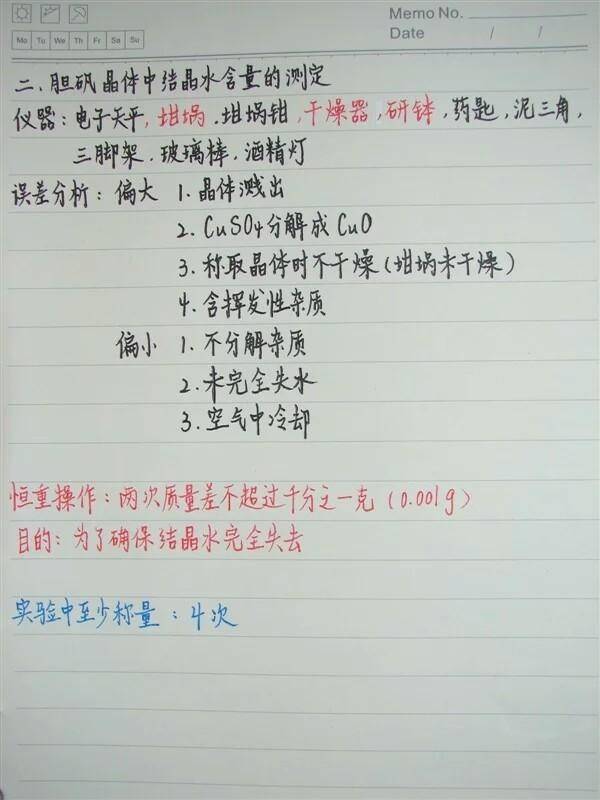 Memo No.
Mo Tu We Th Fr Sa Su
Date / /
二、胆矾晶体中结晶水含量的测定
仪器：电子天平，坩埚，坩埚钳，干燥器，研钵，药匙，泥三角，
三脚架，玻璃棒，酒精灯
误差分析：偏大 1. 晶体溅出
2. CuSO4分解成CuO
3. 称取晶体时不干燥（坩埚未干燥）
4. 含挥发性杂质
偏小 1. 不分解杂质
2. 未完全失水
3. 空气中冷却
恒重操作：两次质量差不超过千分之一克（0.001g）
目的：为了确保结晶水完全失去
实验中至少称量：4次